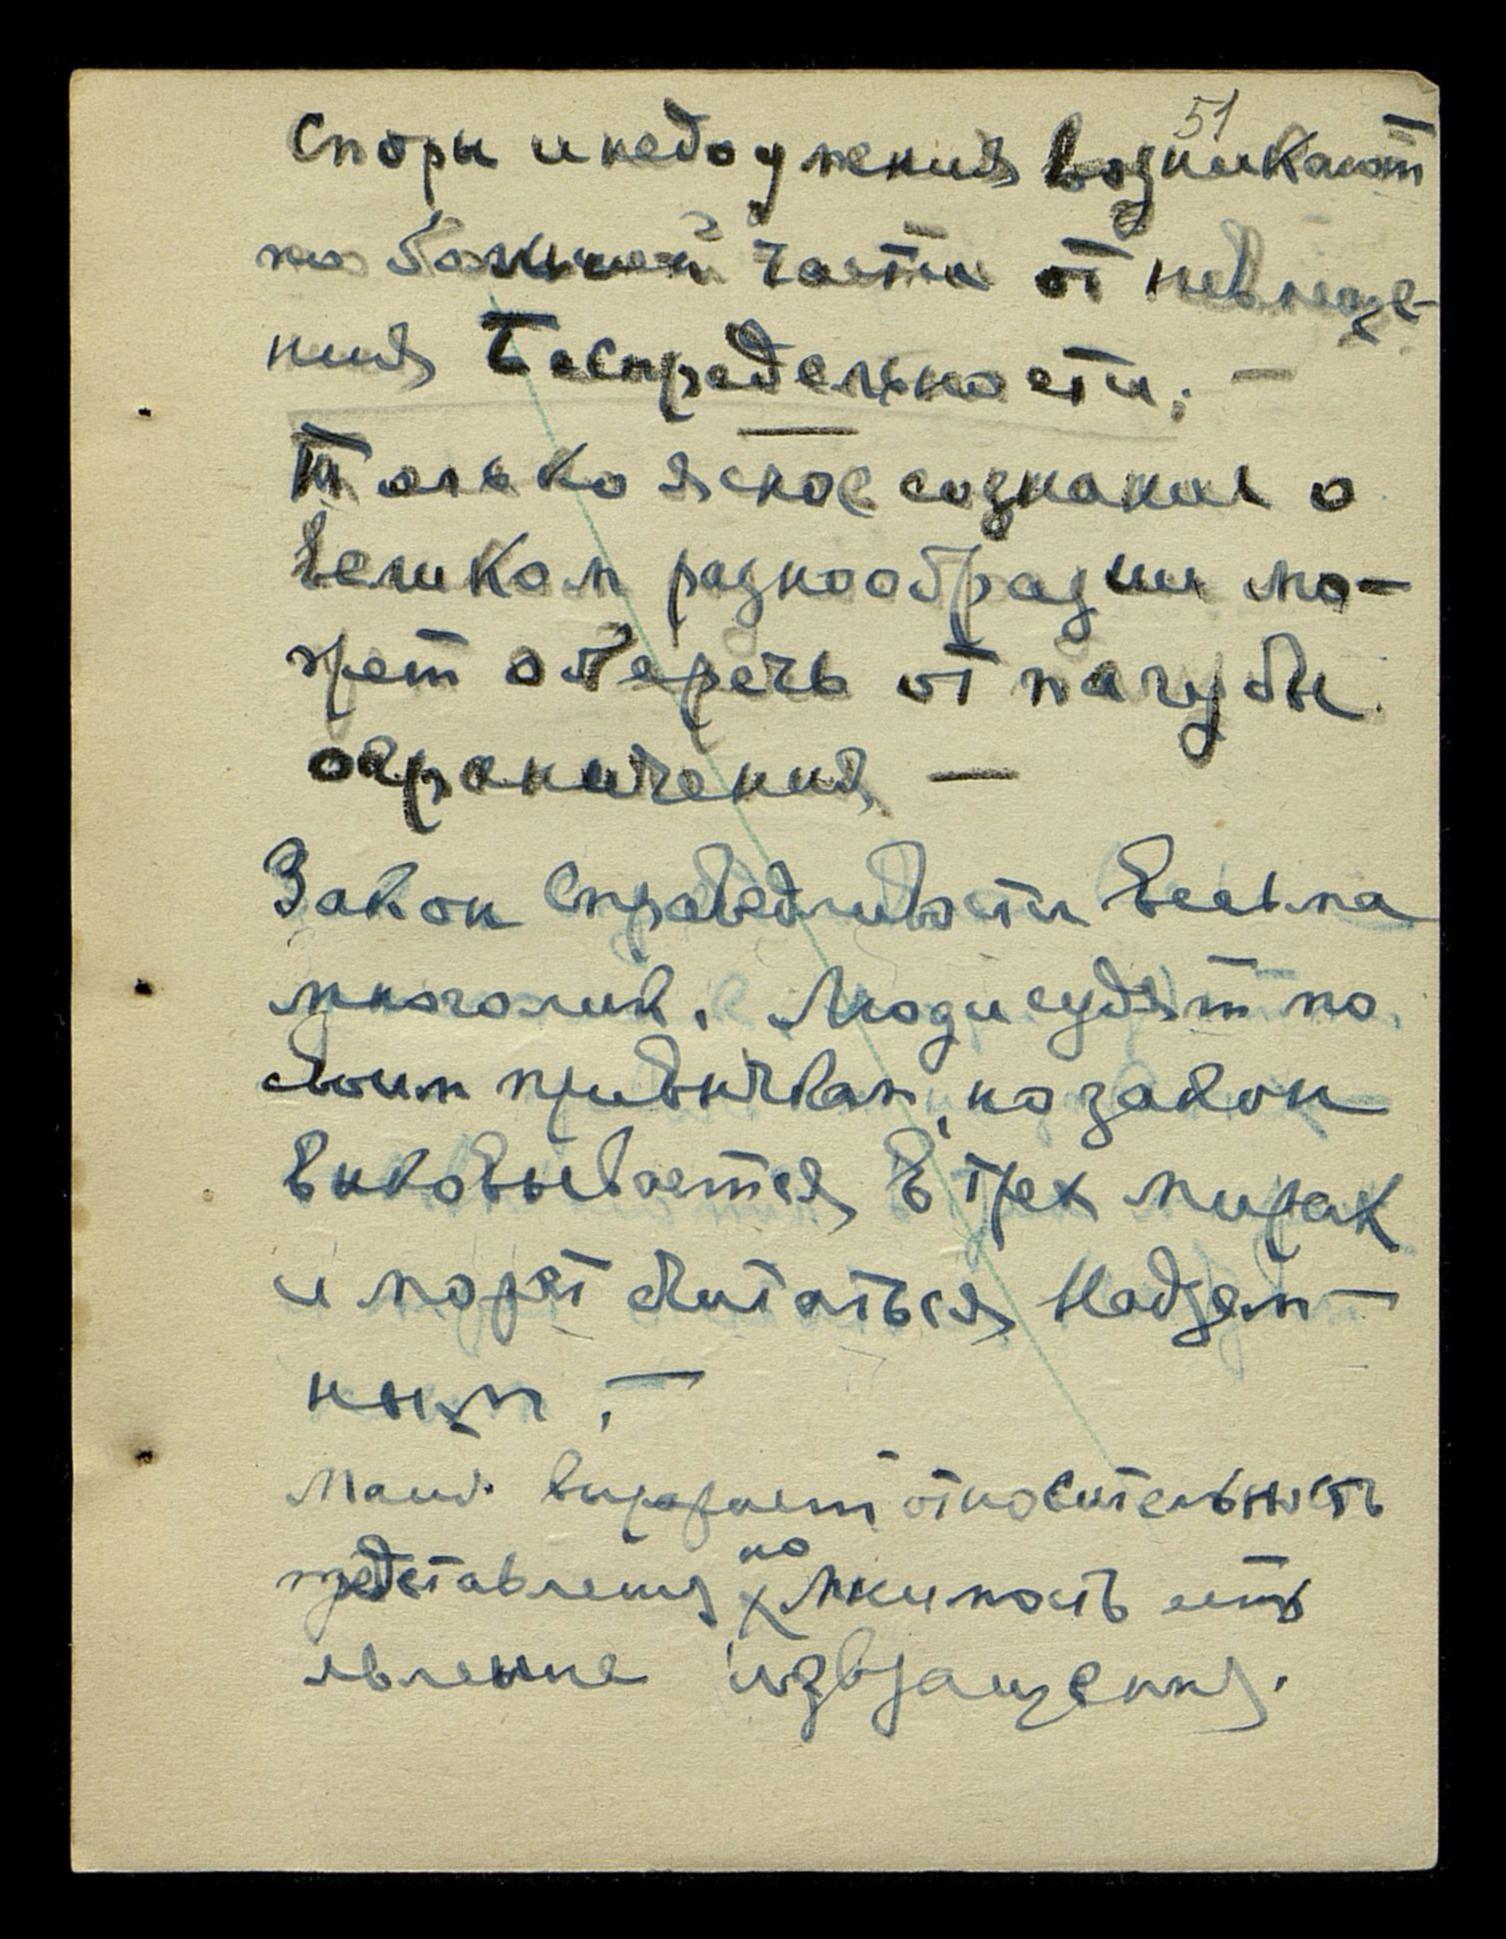 51
Споры и недоумения возникают
по большей части от невмеще-
ния Беспредельности. —
Только ясное сознание о
великом разнообразии мо-
жет оберечь от пагубы
ограничения —
Закон Справедливости весьма
многолик. Люди судят по
своим привычкам, но закон
выковывается в трех мирах
и может считаться Надзем-
ным. —
выражает относительность
представления но мнимость есть
явление извращения.